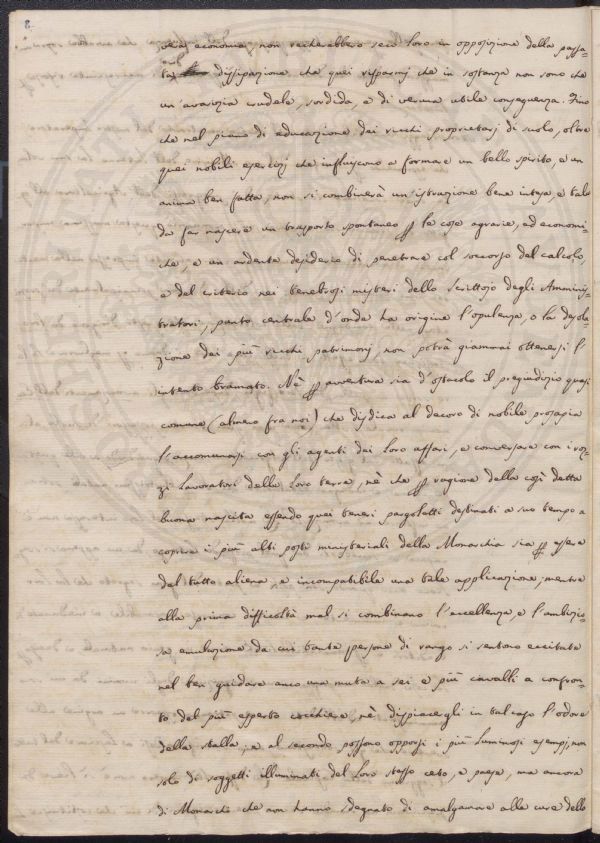 8
vera economia, non recherebbero seco loro in opposizione della passa-
ta dissipazione che quei risparmj che in sostanza non sono che
un'avarizia crudele, sordida, e di veruna utile conseguenza. Fino
che nel piano di educazione dei ricchi proprietarj di suolo, oltre
quei nobili esercizj che influiscono a formare un bello spirito, e un
anima ben fatta, non si combinerà un'istruzione bene intesa, e tale
da far nascere un trasporto spontaneo per le cose agrarie, ed economi-
che, e un ardente desiderio di penetrare col soccorso del calcolo,
e del criterio nei tenebrosi misteri dello Scrittojo degli Amminis-
tratori, punto centrale d'onde ha origine l'opulenza, o la desola-
zione dei più ricchi patrimonj, non potrà giammai ottenersi l'
intento bramato. Nè per avventura sia d'ostacolo il pregiudizio quasi
comune (almeno fra noi) che disdica al decoro di nobile prosapia
l'accomunarsi con gli agenti dei loro affari, e conversare con i roz-
zi lavoratori della loro terra, nè che per ragione della così detta
buona nascita essendo quei teneri pargoletti destinati a suo tempo a
coprire i più alti posti ministeriali della Monarchia sia per essere
del tutto aliena, e incompatibile una tale applicazione; mentre
alla prima difficoltà mal si combinano l'eccellenza, e l'ambizio-
sa emulazione da cui tante persone di rango si sentono eccitate
nel ben guidare anco una muta a sei e più cavalli a confron-
to del più esperto cocchiere, nè dispiacergli in tal caso l'odore
della stalla; e al secondo possono opporsi i più luminosi esempj, non
solo di soggetti illuminati del loro stesso ceto, e paese, ma ancora
di Monarchi che non hanno sdegnato di amalgamare alle cure dello